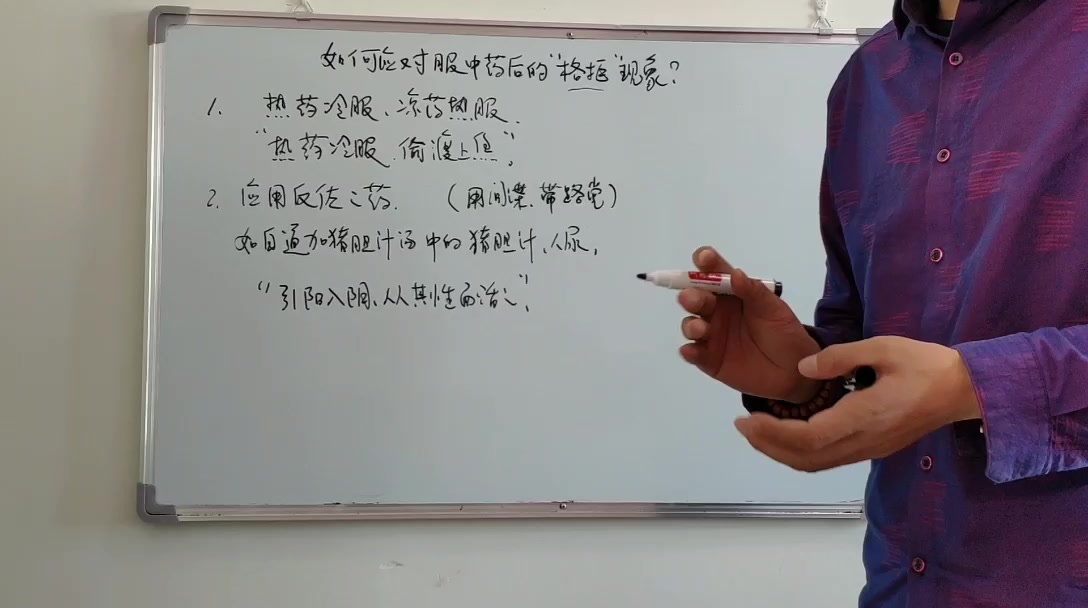 如何应对服中药后的"格拒"现象?
1. 热药冷服、凉药热服.
"热药冷服 偷渡上焦"。
2. 应用反佐之药. (用间谍、带路党)
如白通加猪胆汁汤中的猪胆汁、人尿,
"引阳入阴、从其性而治之"。